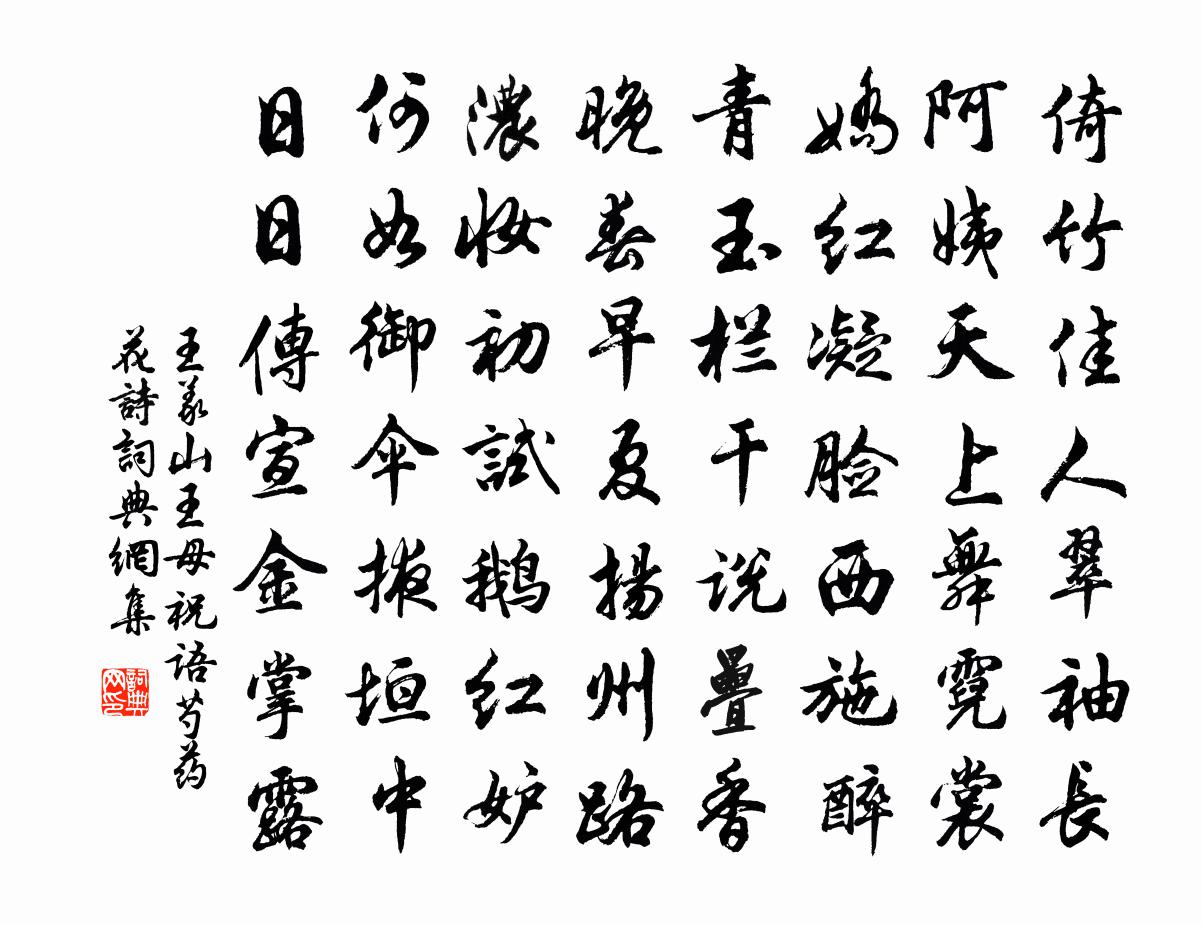 倚竹佳人翠袖長
阿姨天上舞霓裳
嬌红凝脸西施醉
青玉栏干说疊香
晚春早夏揚州路
濃妝初試鵝红妒
何如御伞掖垣中
日日傳宣金掌露
王義山王母祝语芍药
花詩詞典網集
詞典网印